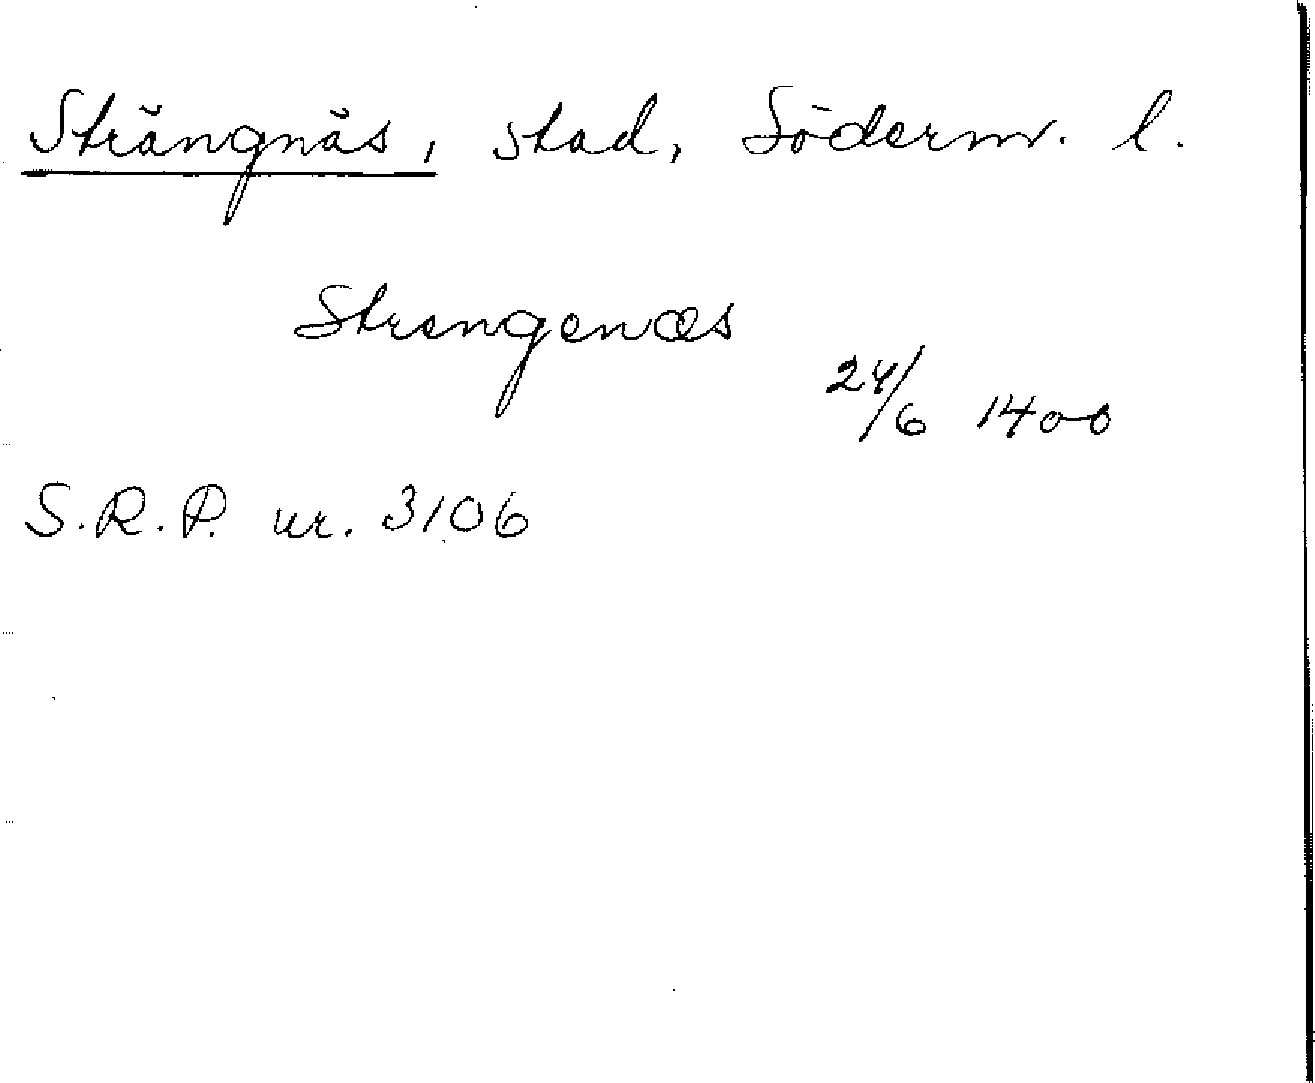 Strängnäs, stad, Söderm. l.
Strengenæs
24/6 1400
S.R.P. nr. 3106